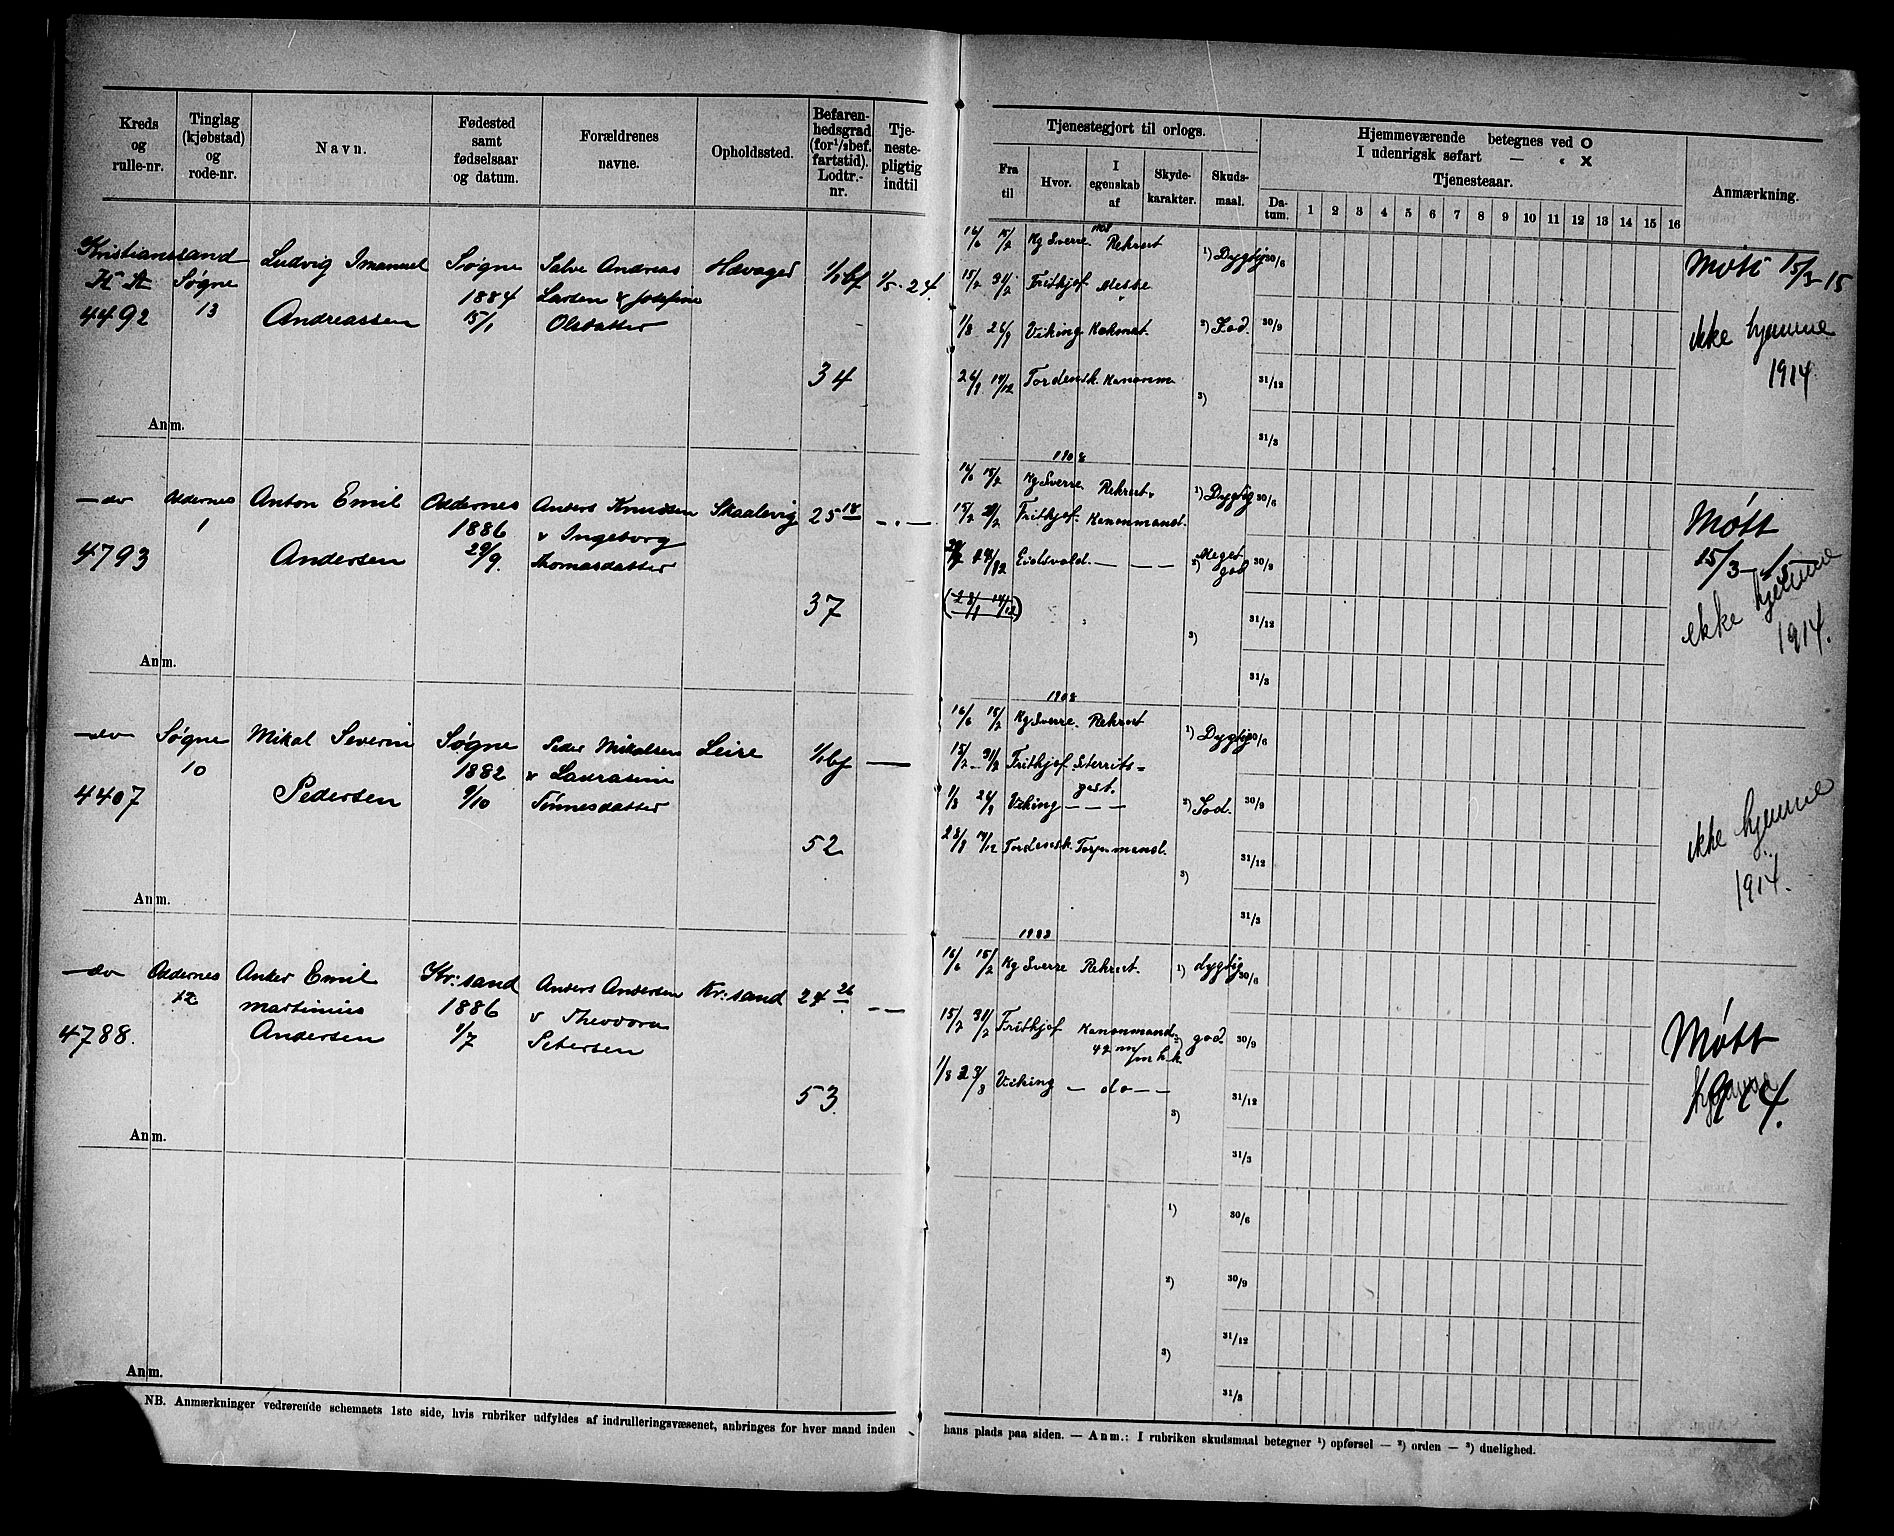 Kreds og rulle-nr.
Tinglag (kjøbstad) og rode-nr.
Navn.
Fødested samt fødselsaar og datum.
Forældrenes navne.
Opholdssted.
Befarenhedsgrad (for 1/1 bef. fartstid). Lodtr.-nr.
Tjenestepligtig indtil
Tjenestegjort til orlogs.
Fra til
Hvor.
I egenskab af
Skydekarakter.
Skudsmaal.
Hjemmeværende betegnes ved O
I udenrigsk søfart — " X
Tjenesteaar.
Datum.
1 2 3 4 5 6 7 8 9 10 11 12 13 14 15 16
Anmærkning.
Kristianssand
Søgne
4492
13
Ludvig Imanuel
Andreassen
Søgne
1884
15/1
Salve Andreas
Larsen & Josefine
Olsdatter
1/1 bf
1/5-24.
34
16/6 15/2 Kg Sverre Rekrut
15/2 31/2 Frithjof Messe
1/8 26/9 Viking Kokmat.
26/9 14/12 Tordensk. Kanonm
1) Dygtig 30/6
2) God. 30/9
3)
31/12
31/3
Møtt 15/3-15
ikke hjemme
1914
Anm.
—do
4793
Oddernes
1
Anton Emil
Andersen
Oddernes
1886
29/9.
Anders Knudsen
v Ingeborg
Thomasdatter
Skaalevig
25 18
— . —
37
1908
16/6 15/2 Kg Sverre. Rekrut.
15/2 31/2 Frithjof. Kanonmand.
Eidsvold. — — —
1) Dygtig 30/6
2) Meget god 30/9
3)
31/12
31/3
Møtt
15/3-15
ikke hjemme
1914.
Anm.
—do
4407
Søgne
10
Mikal Severin
Pedersen
Søgne
1882
9/10
Peder Mikalsen
v Laurasine
Tønnesdatter
Leire
1/1 bf
—
52
1908
16/6 15/2 Kg Sverre. Rekrut
15/2 31/2 Frithjof
1/8 26/9 Viking — — —
28/9 14/12 Tordensk. Torpmand.
1) Dygtig 30/6
2) God. 30/9
3)
31/12
31/3
ikke hjemme
1914.
Anm.
—do
4788.
Oddernes
12
Anker Emil
Martinius
Andersen
Kr:sand
1886
1/7
Anders Andersen
v Theodora
Petersen
Kr:sand
24 26
— —
53
16/6 15/2 Kg Sverre Rekrut.
15/2 31/2 Frithjof Kanonmand
42 m/m h.k.
1/8 23/8 Viking — do — —
1) dygtig 30/6
2) god. 30/9
3)
31/12
31/3
Møtt
hjemme
1914.
Anm.
1)
30/6
2)
30/9
3)
31/12
31/3
Anm.
NB. Anmærkninger vedrørende schemaets 1ste side, hvis rubriker udfyldes af indrulleringsvæsenet, anbringes for hver mand inden hans plads paa siden. — Anm.: I rubriken skudsmaal betegner 1) opførsel — 2) orden — 3) duelighed.